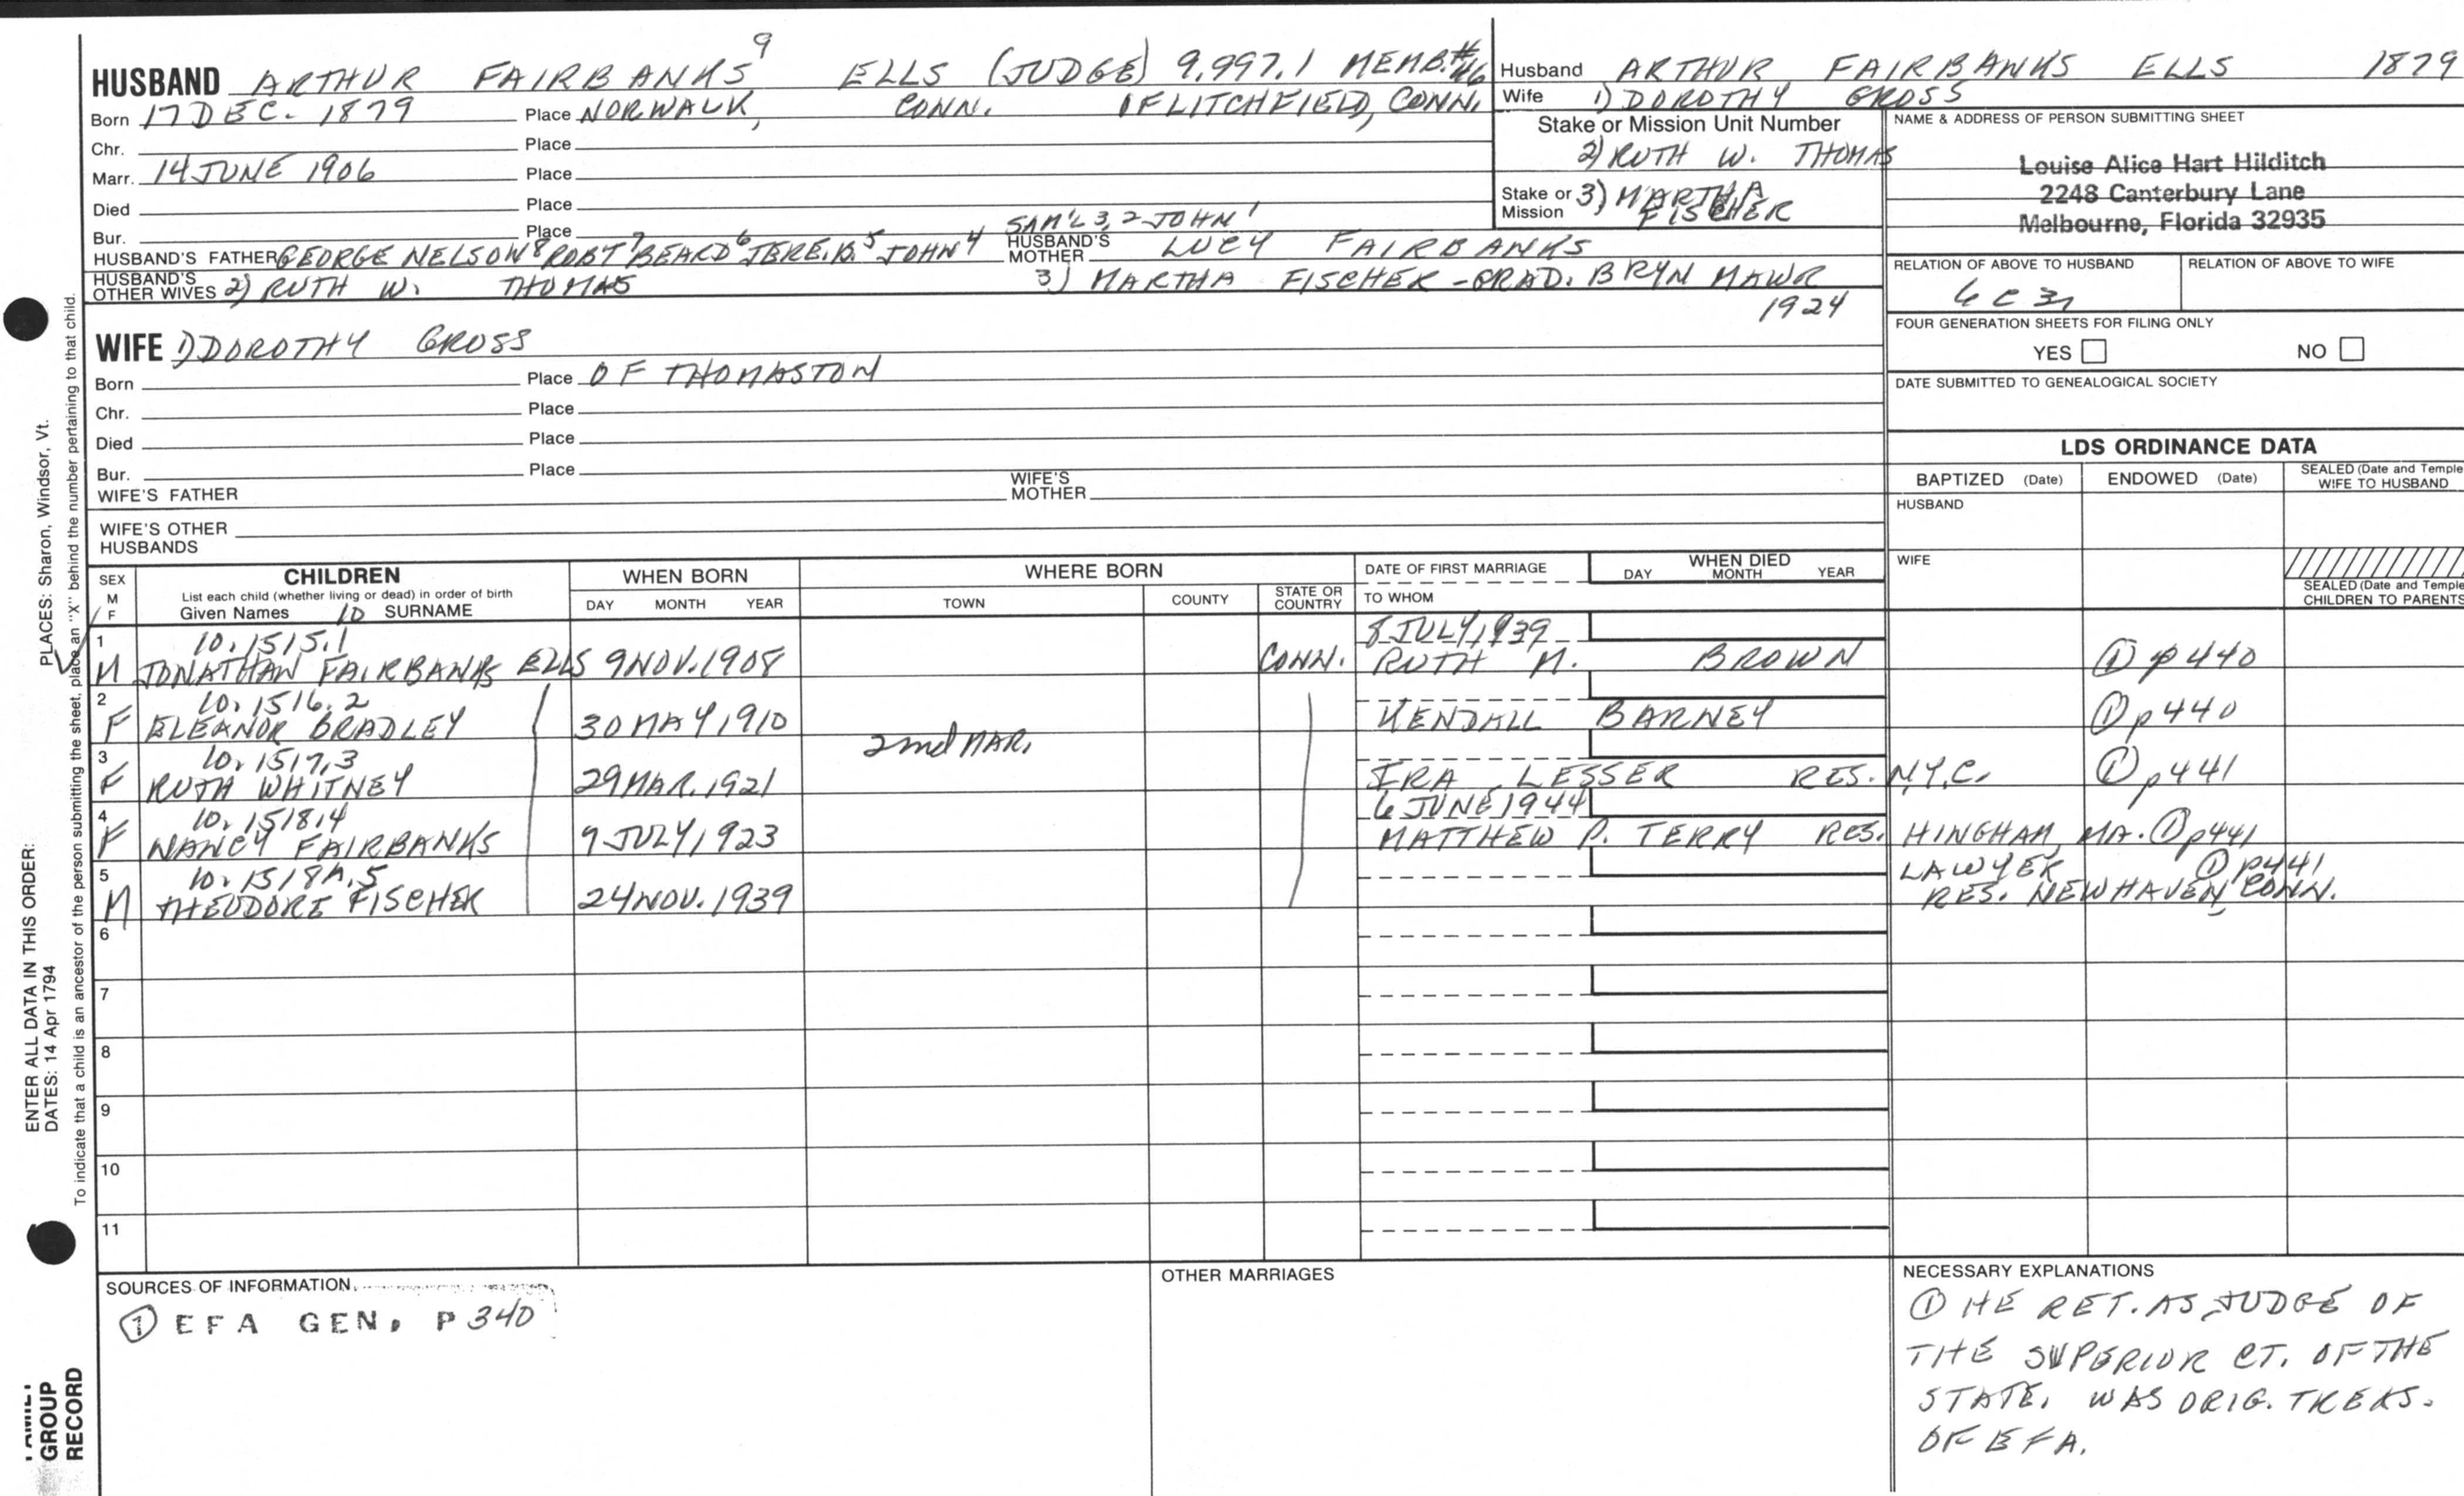 HUSBAND ARTHUR FAIRBANKS 9 ELLS (JUDGE) 9.997.1 MEMB.#46
Born 17 DEC. 1879 Place NORWALK, CONN. OF LITCHFIELD, CONN.
Chr. Place
Marr. 14 JUNE 1906 Place
Died Place
Bur. Place
SAM'L 3, 2 JOHN 1
HUSBAND'S FATHER GEORGE NELSON 8 ROBT 7 BEARD 6 JERE. B. 5 JOHN 4 HUSBAND'S MOTHER LUCY FAIRBANKS
HUSBAND'S OTHER WIVES 2) RUTH W. THOMAS 3) MARTHA FISCHER - GRAD. BRYN MAWR
1924
WIFE 1) DOROTHY GROSS
Born Place OF THOMASTON
Chr. Place
Died Place
Bur. Place
WIFE'S FATHER WIFE'S MOTHER
WIFE'S OTHER HUSBANDS
Husband ARTHUR FAIRBANKS ELLS 1879
Wife 1) DOROTHY GROSS
Stake or Mission Unit Number
2) RUTH W. THOMAS
Stake or Mission 3) MARTHA
FISCHER
NAME & ADDRESS OF PERSON SUBMITTING SHEET
Louise Alice Hart Hilditch
2248 Canterbury Lane
Melbourne, Florida 32935
RELATION OF ABOVE TO HUSBAND RELATION OF ABOVE TO WIFE
FOUR GENERATION SHEETS FOR FILING ONLY
YES NO
DATE SUBMITTED TO GENEALOGICAL SOCIETY
LDS ORDINANCE DATA
BAPTIZED (Date) ENDOWED (Date) SEALED (Date and Temple WIFE TO HUSBAND
HUSBAND
WIFE
SEALED (Date and Temple
CHILDREN TO PARENTS
SEX M / F CHILDREN WHEN BORN WHERE BORN DATE OF FIRST MARRIAGE WHEN DIED
List each child (whether living or dead) in order of birth
Given Names 10 SURNAME DAY MONTH YEAR TOWN COUNTY STATE OR COUNTRY TO WHOM DAY MONTH YEAR
1 10.1515.1 8 JULY, 1939
M JONATHAN FAIRBANKS ELLS 9 NOV. 1908 CONN. RUTH M. BROWN ① p 440
2 10.1516.2
F ELEANOR BRADLEY 30 MAY 1910 KENDALL BARNEY ① p 440
2nd MAR.
3 10.1517.3
F RUTH WHITNEY 29 MAR. 1921 IRA LESSER RES. N.Y.C. ① p 441
4 10.1518.4 6 JUNE 1944
F NANCY FAIRBANKS 9 JULY, 1923 MATTHEW P. TERRY RES. HINGHAM, MA. ① p441
5 10.1518A.5 LAWYER ① p441
M THEODORE FISCHER 24 NOV. 1939 RES. NEW HAVEN, CONN.
6
7
8
9
10
11
SOURCES OF INFORMATION
① EFA GEN. P 340
OTHER MARRIAGES
NECESSARY EXPLANATIONS
① HE RET. AS JUDGE OF
THE SUPERIOR CT. OF THE
STATE. WAS ORIG. TREAS.
OF EFA.
ENTER ALL DATA IN THIS ORDER:
DATES: 14 Apr 1794 PLACES: Sharon, Windsor, Vt.
To indicate that a child is an ancestor of the person submitting the sheet, place an "X" behind the number pertaining to that child.
GROUP
RECORD